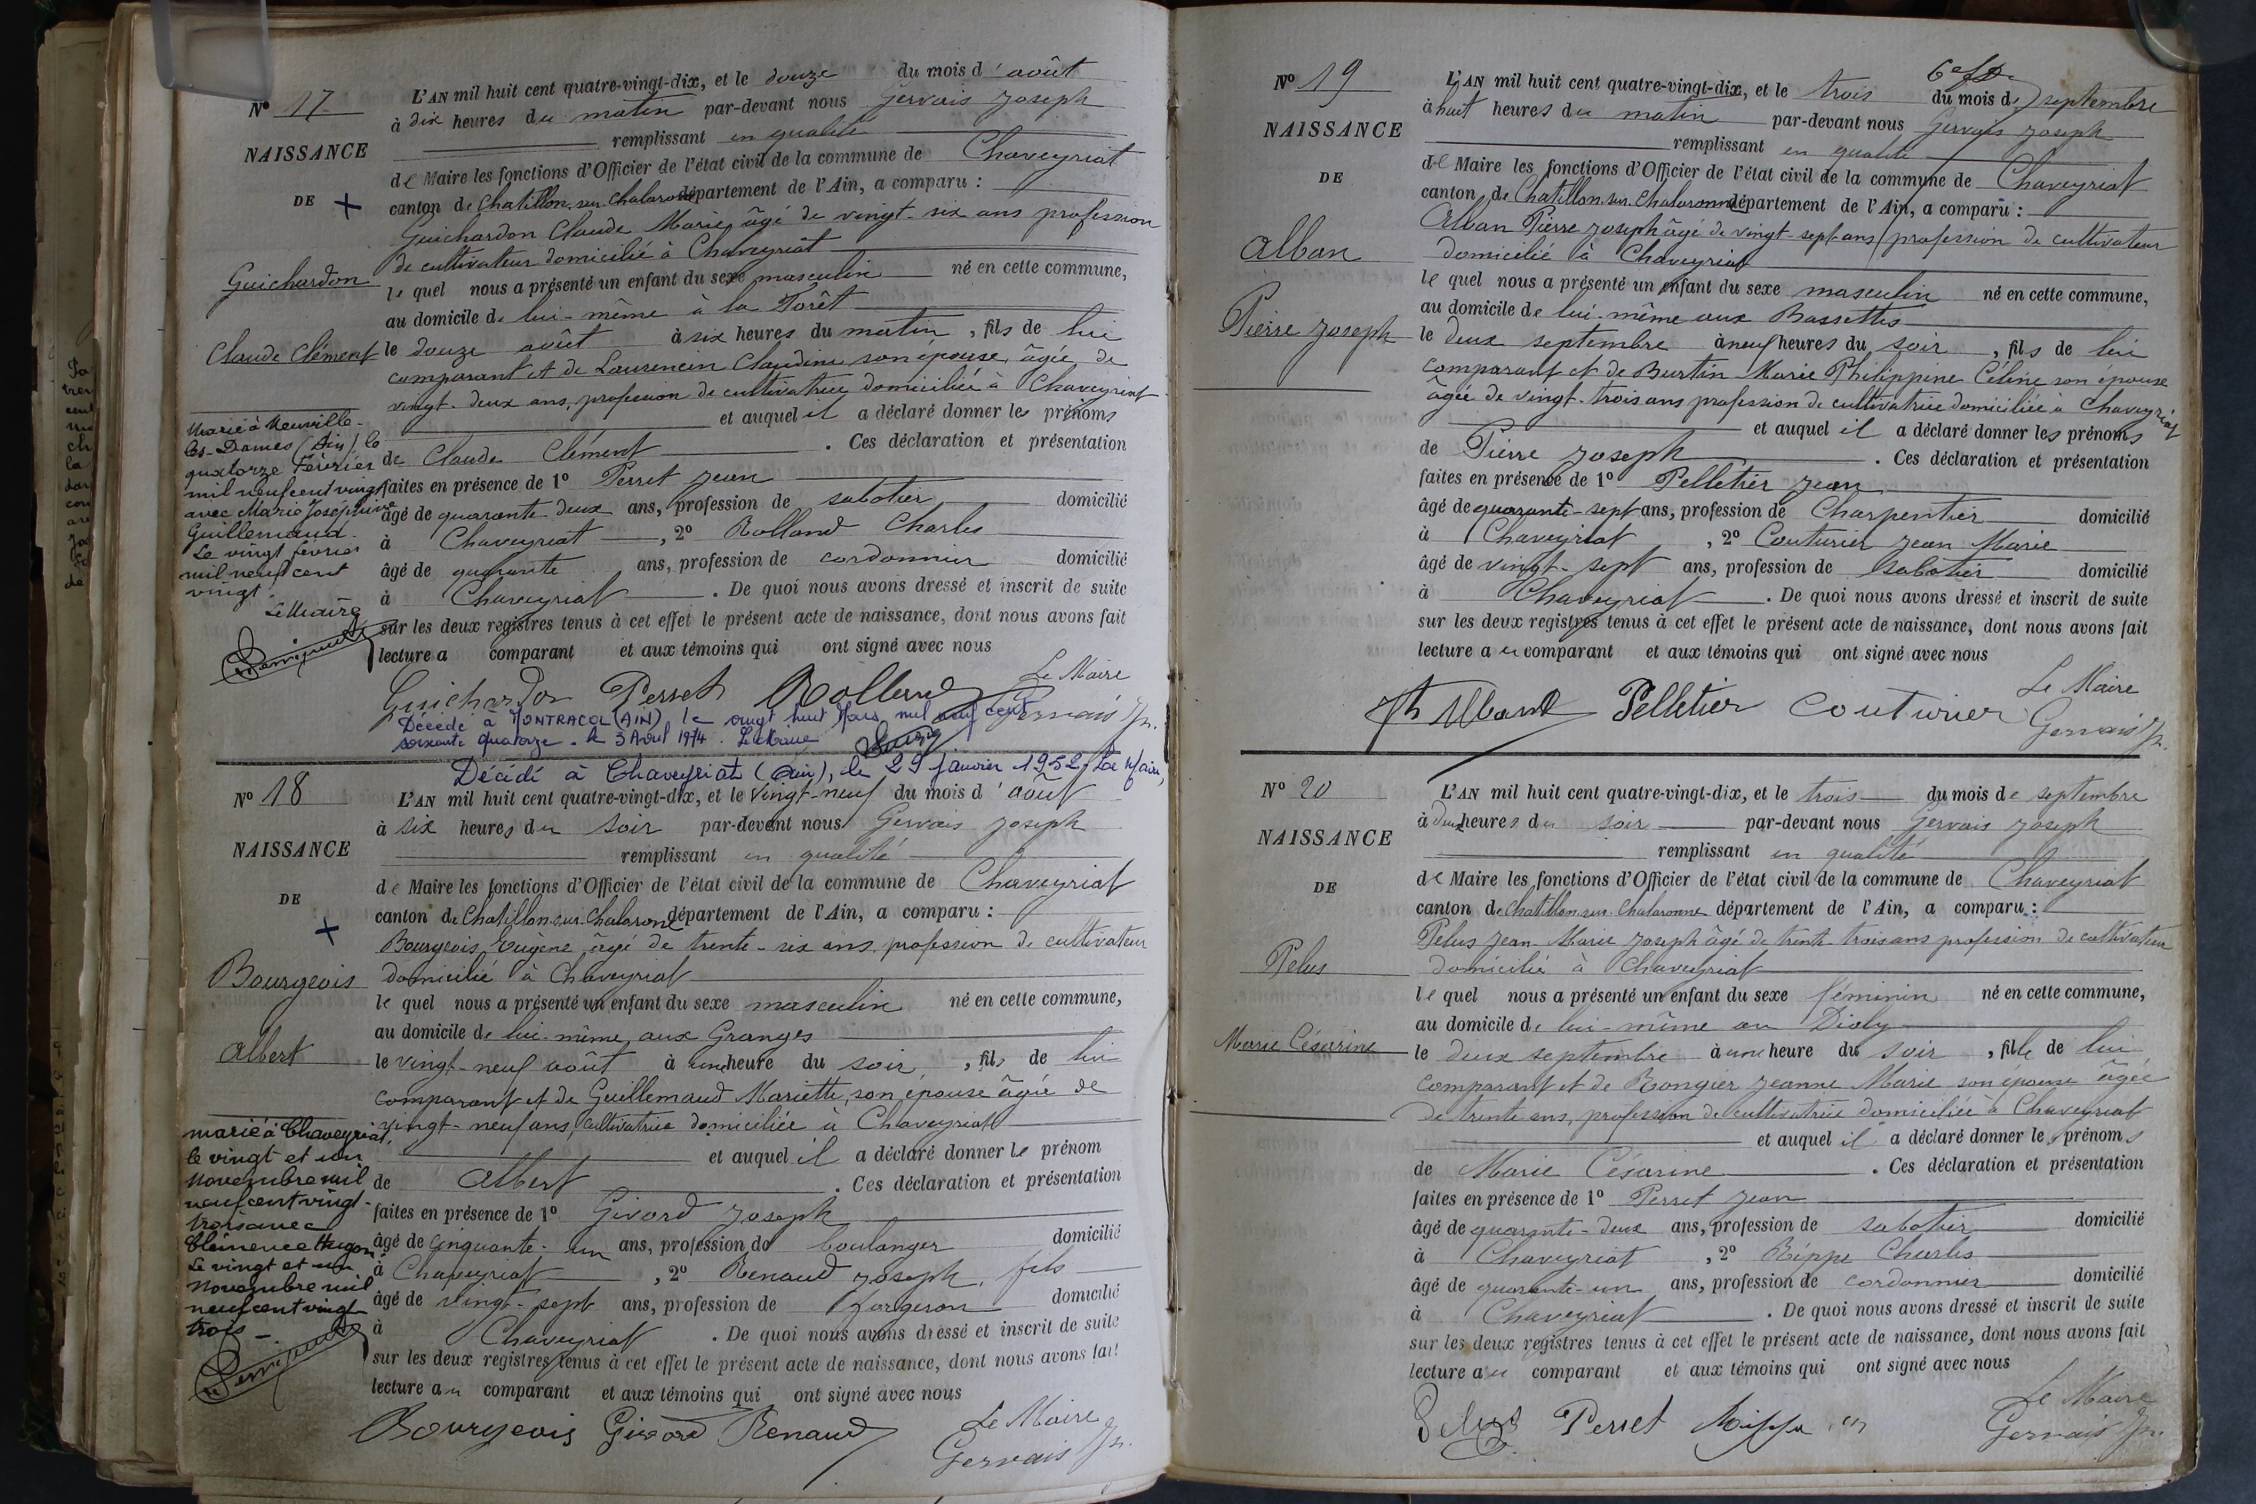 N° 17
NAISSANCE
DE +
Guichardon
Claude Clément
L'AN mil huit cent quatre-vingt-dix, et le douze du mois d'août
à dix heures du matin par-devant nous Gervais Joseph
remplissant en qualité
de Maire les fonctions d'Officier de l'état civil de la commune de Chaveyriat
canton de Chatillon-sur-Chalaronne département de l'Ain, a comparu :
Guichardon Claude Marie, âgé de vingt-six ans profession
de cultivateur domicilié à Chaveyriat
le quel nous a présenté un enfant du sexe masculin né en cette commune,
au domicile de lui-même à la Forêt
le douze août à six heures du matin, fils de lui
comparant et de Laurencin Claudine son épouse, âgée de
vingt-deux ans, profession de cultivatrice domiciliée à Chaveyriat
et auquel il a déclaré donner les prénoms
de Claude Clément . Ces déclaration et présentation
faites en présence de 1° Perret Jean
âgé de quarante deux ans, profession de sabotier domicilié
à Chaveyriat, 2° Rolland Charles
âgé de quarante ans, profession de cordonnier domicilié
à Chaveyriat . De quoi nous avons dressé et inscrit de suite
sur les deux registres tenus à cet effet le présent acte de naissance, dont nous avons fait
lecture a comparant et aux témoins qui ont signé avec nous
Marié à Neuville-
les-Dames (Ain) le
quatorze Février
mil neuf cent vingt
avec Marie Joséphine
Guillemaud.
Le vingt février
mil neuf cent
vingt.
Le Maire
Guichardon Perret Rolland Le Maire
Gervais Jh.
Décédé à MONTRACOL (AIN) le vingt huit Mars mil neuf cent
soixante quatorze. le 3 Avril 1974. Le Maire
Décédé à Chaveyriat (Ain), le 29 janvier 1952. Le Maire,
N° 18
NAISSANCE
DE
+
Bourgeois
Albert
L'AN mil huit cent quatre-vingt-dix, et le vingt-neuf du mois d'août
à six heures du soir par-devant nous Gervais Joseph
remplissant en qualité
de Maire les fonctions d'Officier de l'état civil de la commune de Chaveyriat
canton de Chatillon-sur-Chalaronne département de l'Ain, a comparu :
Bourgeois Eugène, âgé de trente-six ans, profession de cultivateur
domicilié à Chaveyriat
le quel nous a présenté un enfant du sexe masculin né en cette commune,
au domicile de lui-même, aux Granges
le vingt-neuf août à une heure du soir, fils de lui
comparant et de Guillemaud Mariette, son épouse âgée de
vingt-neuf ans, cultivatrice domiciliée à Chaveyriat
et auquel il a déclaré donner le prénom
de Albert . Ces déclaration et présentation
faites en présence de 1° Givord Joseph
âgé de cinquante-un ans, profession de boulanger domicilié
à Chaveyriat, 2° Renaud Joseph, fils
âgé de vingt-sept ans, profession de forgeron domicilié
à Chaveyriat . De quoi nous avons dressé et inscrit de suite
sur les deux registres tenus à cet effet le présent acte de naissance, dont nous avons fait
lecture au comparant et aux témoins qui ont signé avec nous
marié à Chaveyriat,
le vingt et un
novembre mil
neuf cent vingt-
trois avec
Clémence Hugon.
Le vingt et un
novembre mil
neuf cent vingt
trois -.
Bourgeois Givord Renaud Le Maire
Gervais Jh.
N° 19
NAISSANCE
DE
Alban
Pierre Joseph
L'AN mil huit cent quatre-vingt-dix, et le trois du mois de septembre
à huit heures du matin par-devant nous Gervais Joseph
remplissant en qualité
de Maire les fonctions d'Officier de l'état civil de la commune de Chaveyriat
canton de Chatillon-sur-Chalaronne département de l'Ain, a comparu :
Alban Pierre Joseph âgé de vingt-sept ans, profession de cultivateur
domicilié à Chaveyriat
le quel nous a présenté un enfant du sexe masculin né en cette commune,
au domicile de lui-même aux Bassettes
le deux septembre à neuf heures du soir, fils de lui
comparant et de Burtin Marie Philippine Céline son épouse
âgée de vingt-trois ans profession de cultivatrice domiciliée à Chaveyriat
et auquel il a déclaré donner les prénoms
de Pierre Joseph . Ces déclaration et présentation
faites en présence de 1° Pelletier Jean
âgé de quarante-sept ans, profession de Charpentier domicilié
à Chaveyriat, 2° Couturier Jean Marie
âgé de vingt-sept ans, profession de sabotier domicilié
à Chaveyriat . De quoi nous avons dressé et inscrit de suite
sur les deux registres tenus à cet effet le présent acte de naissance, dont nous avons fait
lecture au comparant et aux témoins qui ont signé avec nous
Jh Alband Pelletier Couturier Le Maire
Gervais Jh.
N° 20
NAISSANCE
DE
Pelus
Marie Césarine
L'AN mil huit cent quatre-vingt-dix, et le trois du mois de septembre
à deux heures du soir par-devant nous Gervais Joseph
remplissant en qualité
de Maire les fonctions d'Officier de l'état civil de la commune de Chaveyriat
canton de Chatillon-sur-Chalaronne département de l'Ain, a comparu :
Pelus Jean-Marie Joseph âgé de trente-trois ans profession de cultivateur
domicilié à Chaveyriat
le quel nous a présenté un enfant du sexe féminin né en cette commune,
au domicile de lui-même au Dioly
le deux septembre à une heure du soir, fille de lui
comparant et de Rongier Jeanne Marie son épouse âgée
de trente ans, profession de cultivatrice domiciliée à Chaveyriat
et auquel il a déclaré donner les prénoms
de Marie Césarine . Ces déclaration et présentation
faites en présence de 1° Perret Jean
âgé de quarante-deux ans, profession de sabotier domicilié
à Chaveyriat, 2° Rippe Charles
âgé de quarante-un ans, profession de cordonnier domicilié
à Chaveyriat . De quoi nous avons dressé et inscrit de suite
sur les deux registres tenus à cet effet le présent acte de naissance, dont nous avons fait
lecture au comparant et aux témoins qui ont signé avec nous
Pelus Perret Rippe Le Maire
Gervais Jh.